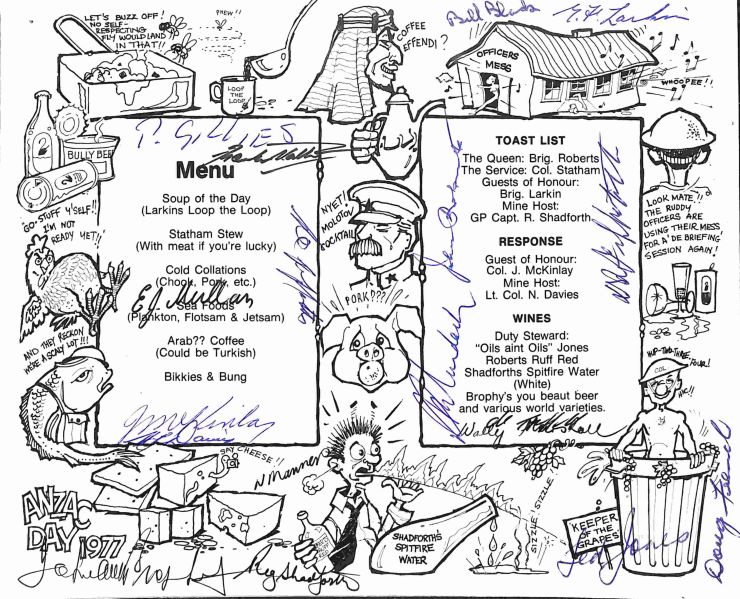 LET'S BUZZ OFF!
NO SELF-
RESPECTING
FLY WOULD LAND
IN THAT!!
PHEW
LOOP
THE
LOOP
COFFEE
EFFENDI?
Bill
G. F. Larkin
OFFICERS
MESS
WHOOPEE!!
BULLY BEEF
P. GILLIES
Menu
Soup of the Day
(Larkins Loop the Loop)
Statham Stew
(With meat if you're lucky)
Cold Collations
(Chook, Pork, etc.)
Sea Foods
(Plankton, Flotsam & Jetsam)
Arab?? Coffee
(Could be Turkish)
Bikkies & Bung
GO-STUFF Y'SELF!!
I'M NOT
READY YET!!
AND THEY RECKON
WE'RE A SCALY LOT!!!
NYET!
MOLOTOV
COCKTAIL
PORK???
TOAST LIST
The Queen: Brig. Roberts
The Service: Col. Statham
Guests of Honour:
Brig. Larkin
Mine Host:
GP Capt. R. Shadforth
RESPONSE
Guest of Honour:
Col. J. McKinlay
Mine Host:
Lt. Col. N. Davies
WINES
Duty Steward:
"Oils aint Oils" Jones
Roberts Ruff Red
Shadforths Spitfire Water
(White)
Brophy's you beaut beer
and various world varieties.
LOOK MATE,
THE RUDDY
OFFICERS ARE
USING THEIR MESS
FOR A' DE BRIEFING'
SESSION AGAIN!
HUP-TWO-THREE-
FOUR!
HIC!!
COL
J McKinlay
Wally
SAY CHEESE!!
N Manners
ANZAC
DAY
1977
Reg Shadforth
SHADFORTH'S
SPITFIRE
WATER
SIZZLE! SIZZLE!
KEEPER
OF THE
GRAPES
Ted Jones
Doug